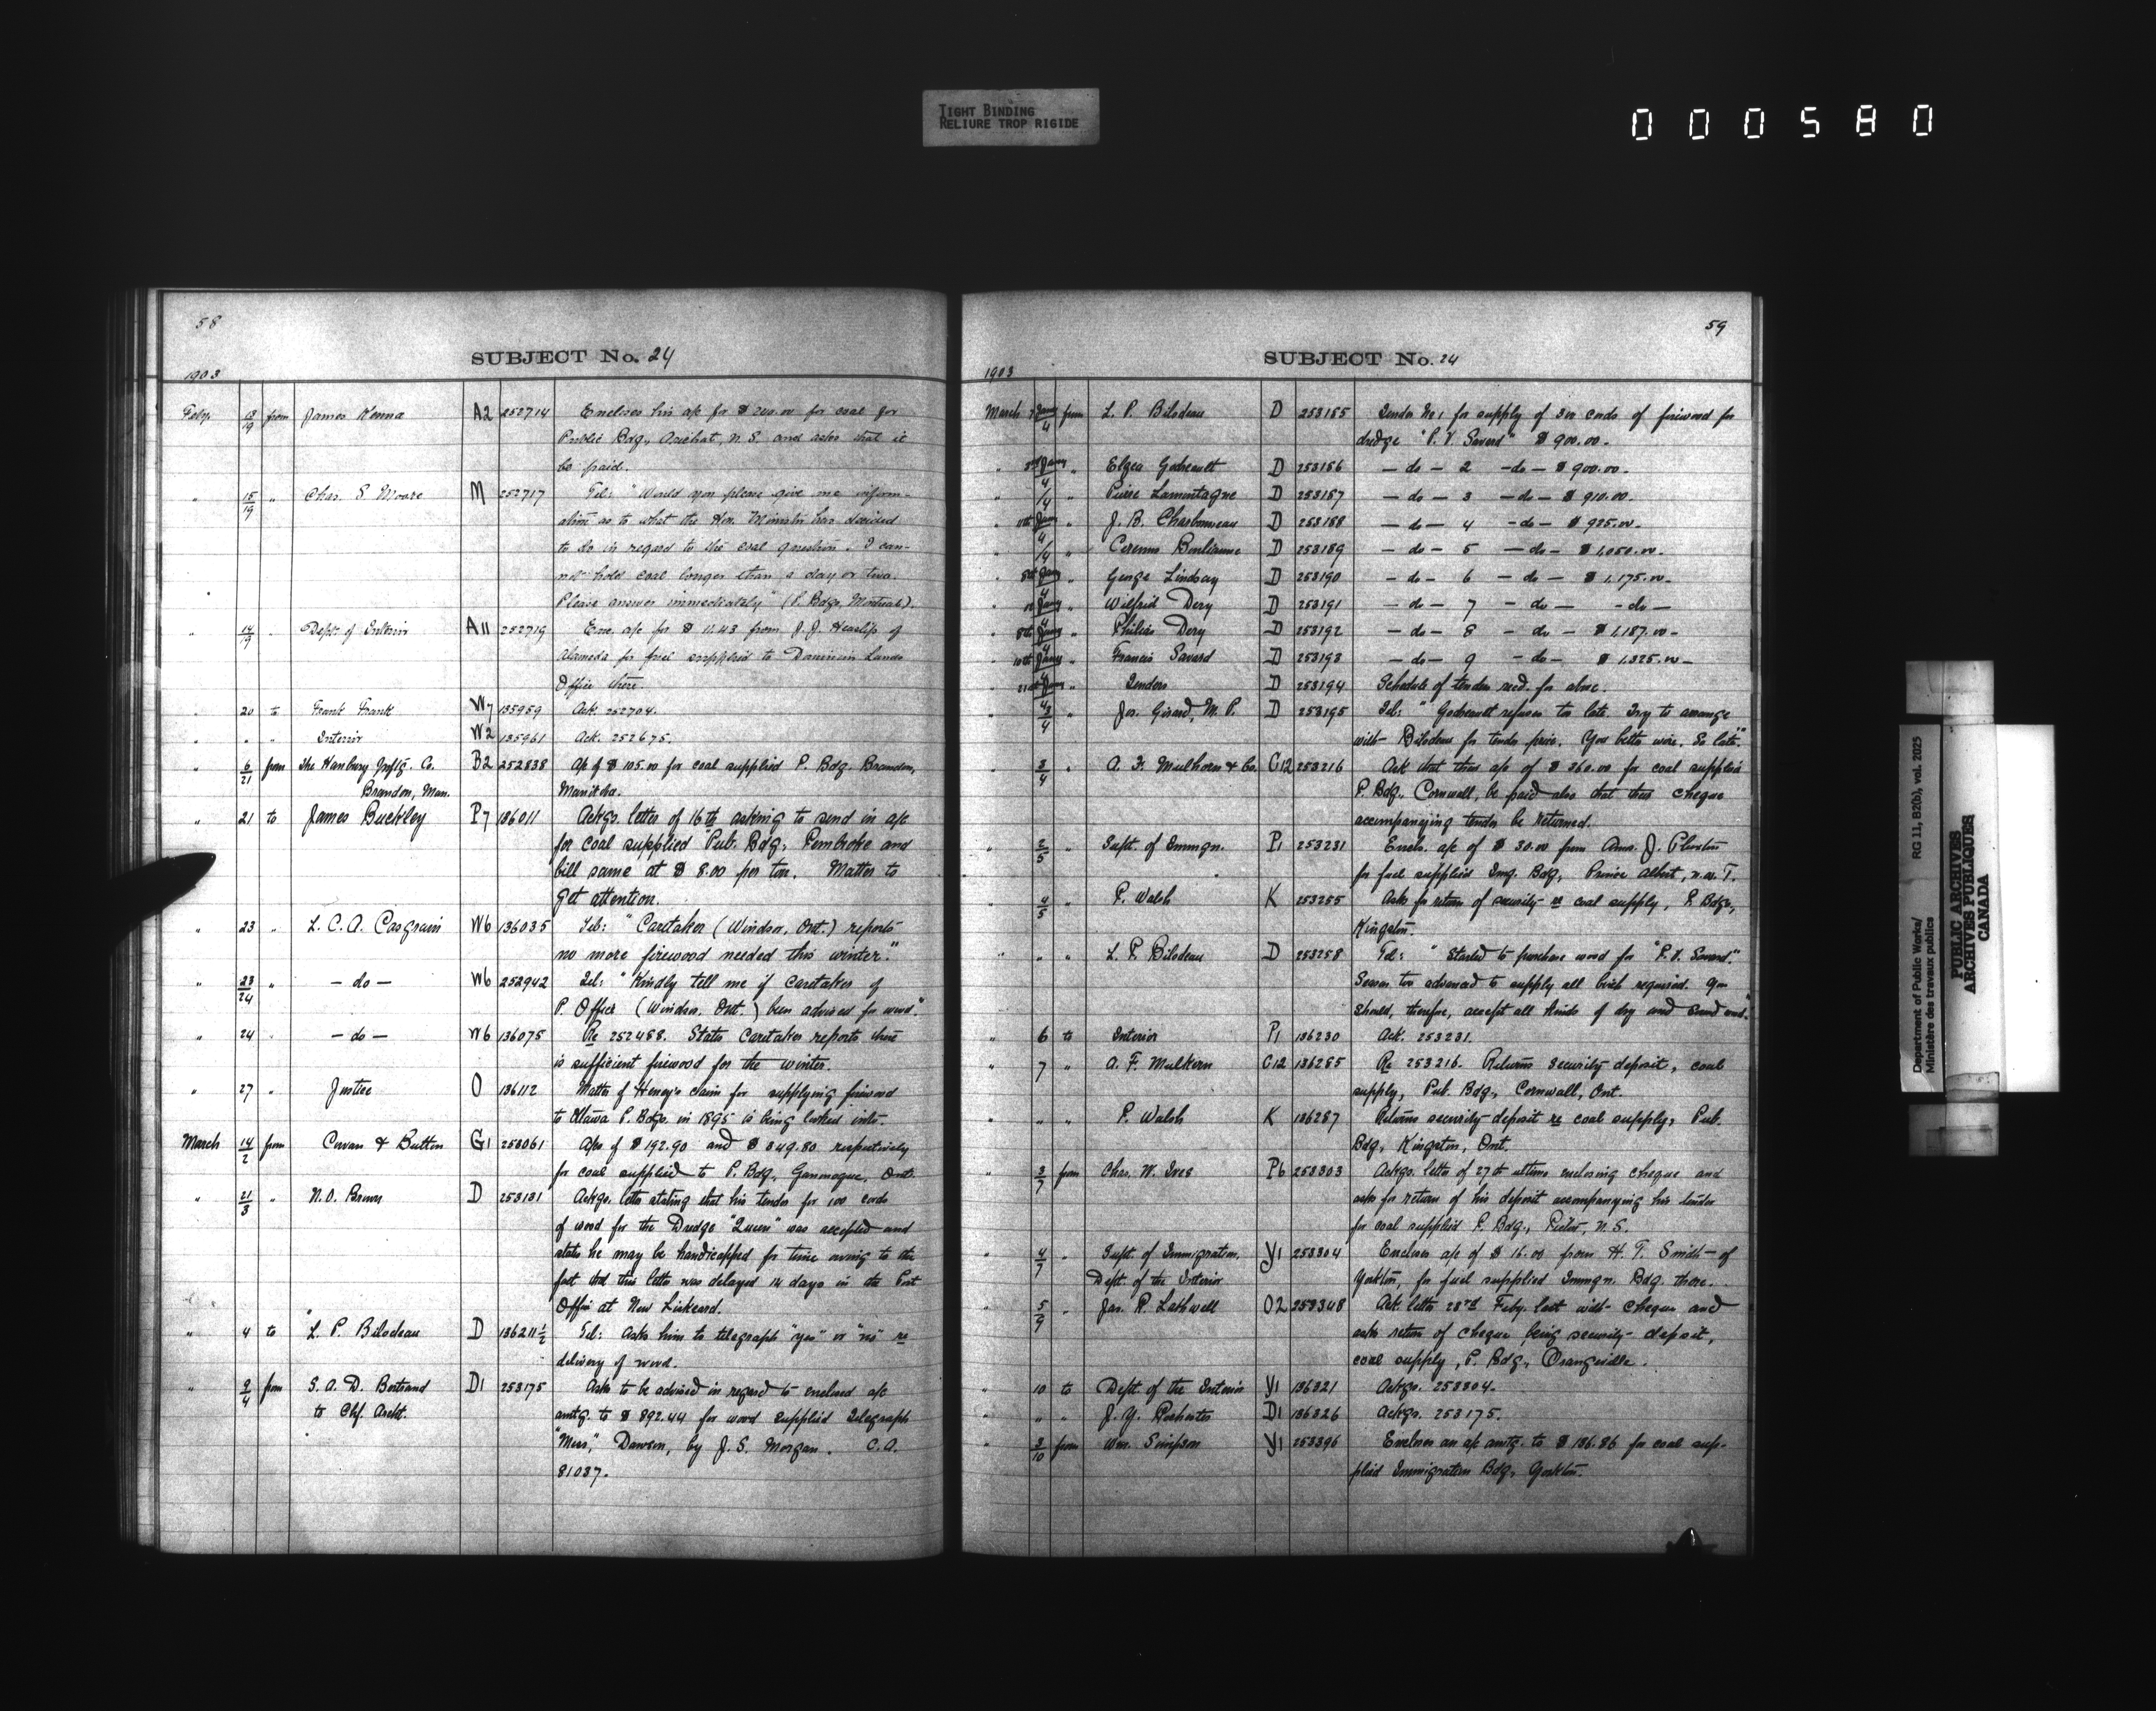 TIGHT BINDING
RELIURE TROP RIGIDE
000580
58
SUBJECT No. 24
1903
Feby. 13/19 from James Kenna A2 252714 Encloses his a/c for $200.00 for coal for
Public Bdg., Arichat, N.S. and asks that it
be paid.
" 15/19 " Chas. S. Moore M 252717 Tel: "Would you please give me inform-
ation as to what the Hon. Minister has decided
to do in regard to the coal question. I can-
not hold coal longer than a day or two.
Please answer immediately" (P. Bdgs. Montreal).
" 14/19 " Dept. of Interior A11 252719 Enc. a/c for $11.43 from J. J. Heaslip of
Alameda for fuel supplied to Dominion Lands
Office there.
" 20 to Frank Frank W7 135959 Ack. 252704.
" " " Interior W2 135961 Ack. 252675.
" 6/21 from The Hanbury Mnfg. Co. B2 252838 A/c of $105.00 for coal supplied P. Bdg. Brandon,
Brandon, Man. Manitoba.
" 21 to James Buckley P7 136011 Ackgs. letter of 16th asking to send in a/c
for coal supplied Pub. Bdg., Pembroke and
bill same at $8.00 per ton. Matter to
get attention.
" 23 " L. C. A. Casgrain W6 136035 Tel: "Caretaker (Windsor, Ont.) reports
no more firewood needed this winter."
" 23/24 " — do — W6 252942 Tel: "Kindly tell me if caretaker of
P. Office (Windsor, Ont.) been advised for wood".
" 24 " — do — W6 136075 Re 252488. States Caretaker reports there
is sufficient firewood for the winter.
" 27 " Justice O 136112 Matter of Heney's claim for supplying firewood
to Ottawa P. Bdgs. in 1895 is being looked into.
March 14/2 from Cowan & Button G1 253061 A/cs of $192.90 and $349.80 respectively
for coal supplied to P. Bdg. Gananoque, Ont.
" 21/3 " N. O. Brown D 253131 Ackgs. letter stating that his tender for 100 cords
of wood for the Dredge "Queen" was accepted and
states he may be handicapped for time owing to the
fact that this letter was delayed 14 days in the Post
Office at New Liskeard.
" 4 to L. P. Bilodeau D 136211½ Tel: Asks him to telegraph "yes" or "no" re
delivery of wood.
" 9/4 from S. A. D. Bertrand D1 253175 Asks to be advised in regard to enclosed a/c
to Chf. Archt. amtg. to $892.44 for wood supplied Telegraph
"Mess," Dawson, by J. S. Morgan. C.A.
81037.
59
SUBJECT No. 24
1903
March Jany/4 from L. P. Bilodeau D 253185 Tender No 1 for supply of 300 cords of firewood for
dredge "P. V. Savard" $900.00.
" 3rd Jany/4 " Elgea Godreault D 253186 — do — 2 — do — $900.00.
" /4 " Pierre Lamontagne D 253187 — do — 3 — do — $910.00.
" Jany/4 " J. B. Charbonneau D 253188 — do — 4 — do — $925.00.
" /4 " D 253189 — do — 5 — do — $1,050.00.
" 8th Jany/4 " George Lindsay D 253190 — do — 6 — do — $1,175.00.
" Jany/4 " Wilfrid Dery D 253191 — do — 7 — do — — do —
" 8th Jany/4 " Philias Dery D 253192 — do — 8 — do — $1,187.00.
" 10th Jany/4 " Francis Savard D 253193 — do — 9 — do — $1,325.00.
" Jany/4 " Tenders D 253194 Schedule of tenders recd. for above.
" 3/4 " Jos. Girard, M. P. D 253195 Tel: "Godreault refuses too late. Try to arrange
with Bilodeau for tender price. You better wire. So late."
" 3/4 " A. F. Mulhern & Co. C12 253216 Ask that their a/c of $360.00 for coal supplied
P. Bdg., Cornwall, be paid also that their cheque
accompanying tender be returned.
" 2/5 " Supt. of Immgn. P1 253231 Encls. a/c of $30.00 from Amos. J.
for fuel supplied Img. Bdg., Prince Albert, N.W.T.
" 4/5 " P. Walsh K 253255 Asks for return of security re coal supply, P. Bdgs.,
Kingston.
" " " L. P. Bilodeau D 253258 Tel: "Started to purchase wood for "P. V. Savard."
Season too advanced to supply all birch required. You
should, therefore, accept all kinds of dry and sound wood."
" 6 to Interior P1 136230 Ack. 253231.
" 7 " A. F. Mulhern C12 136285 Re 253216. Returns security deposit, coal
supply, Pub. Bdg., Cornwall, Ont.
" " " P. Walsh K 136287 Returns security deposit re coal supply, Pub.
Bdg., Kingston, Ont.
" 3/7 from Chas. W. Ives P6 253303 Ackgs. letter of 27th ultimo enclosing cheque and
asks for return of his deposit accompanying his tender
for coal supplied P. Bdg., Pictou, N.S.
" 4/7 " Supt. of Immigration, Y1 253304 Encloses a/c of $16.00 from H. T. Smith of
Dept. of the Interior Yorkton, for fuel supplied Immgn. Bdg. there.
" 5/9 " Jas. R. Lathwell O2 253348 Ack. letter 28rd Feby. last with cheque and
asks return of cheque being security deposit,
coal supply, P. Bdg., Orangeville.
" 10 to Dept. of the Interior Y1 136321 Ackgs. 253304.
" " " J. G. D1 136326 Ackgs. 253175.
" 3/10 from Wm. Simpson Y1 253396 Encloses an a/c amtg. to $136.86 for coal sup-
plied Immigration Bdg., Yorkton.
Department of Public Works/
Ministère des travaux publics
RG 11, B2(b), vol. 2025
PUBLIC ARCHIVES
ARCHIVES PUBLIQUES
CANADA